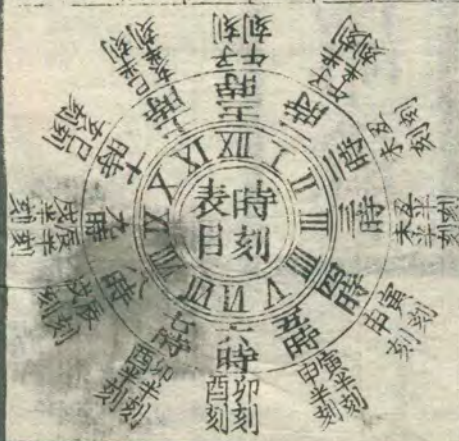 時刻
表目
XII
I
II
III
IIII
V
VI
VII
VIII
IX
X
XI
十二時
子刻
午刻
一時
子半刻
午半刻
二時
丑刻
未刻
三時
丑半刻
未半刻
四時
寅刻
申刻
五時
寅半刻
申半刻
六時
卯刻
酉刻
七時
卯半刻
酉半刻
八時
辰刻
戌刻
九時
辰半刻
戌半刻
十時
巳刻
亥刻
十一時
巳半刻
亥半刻